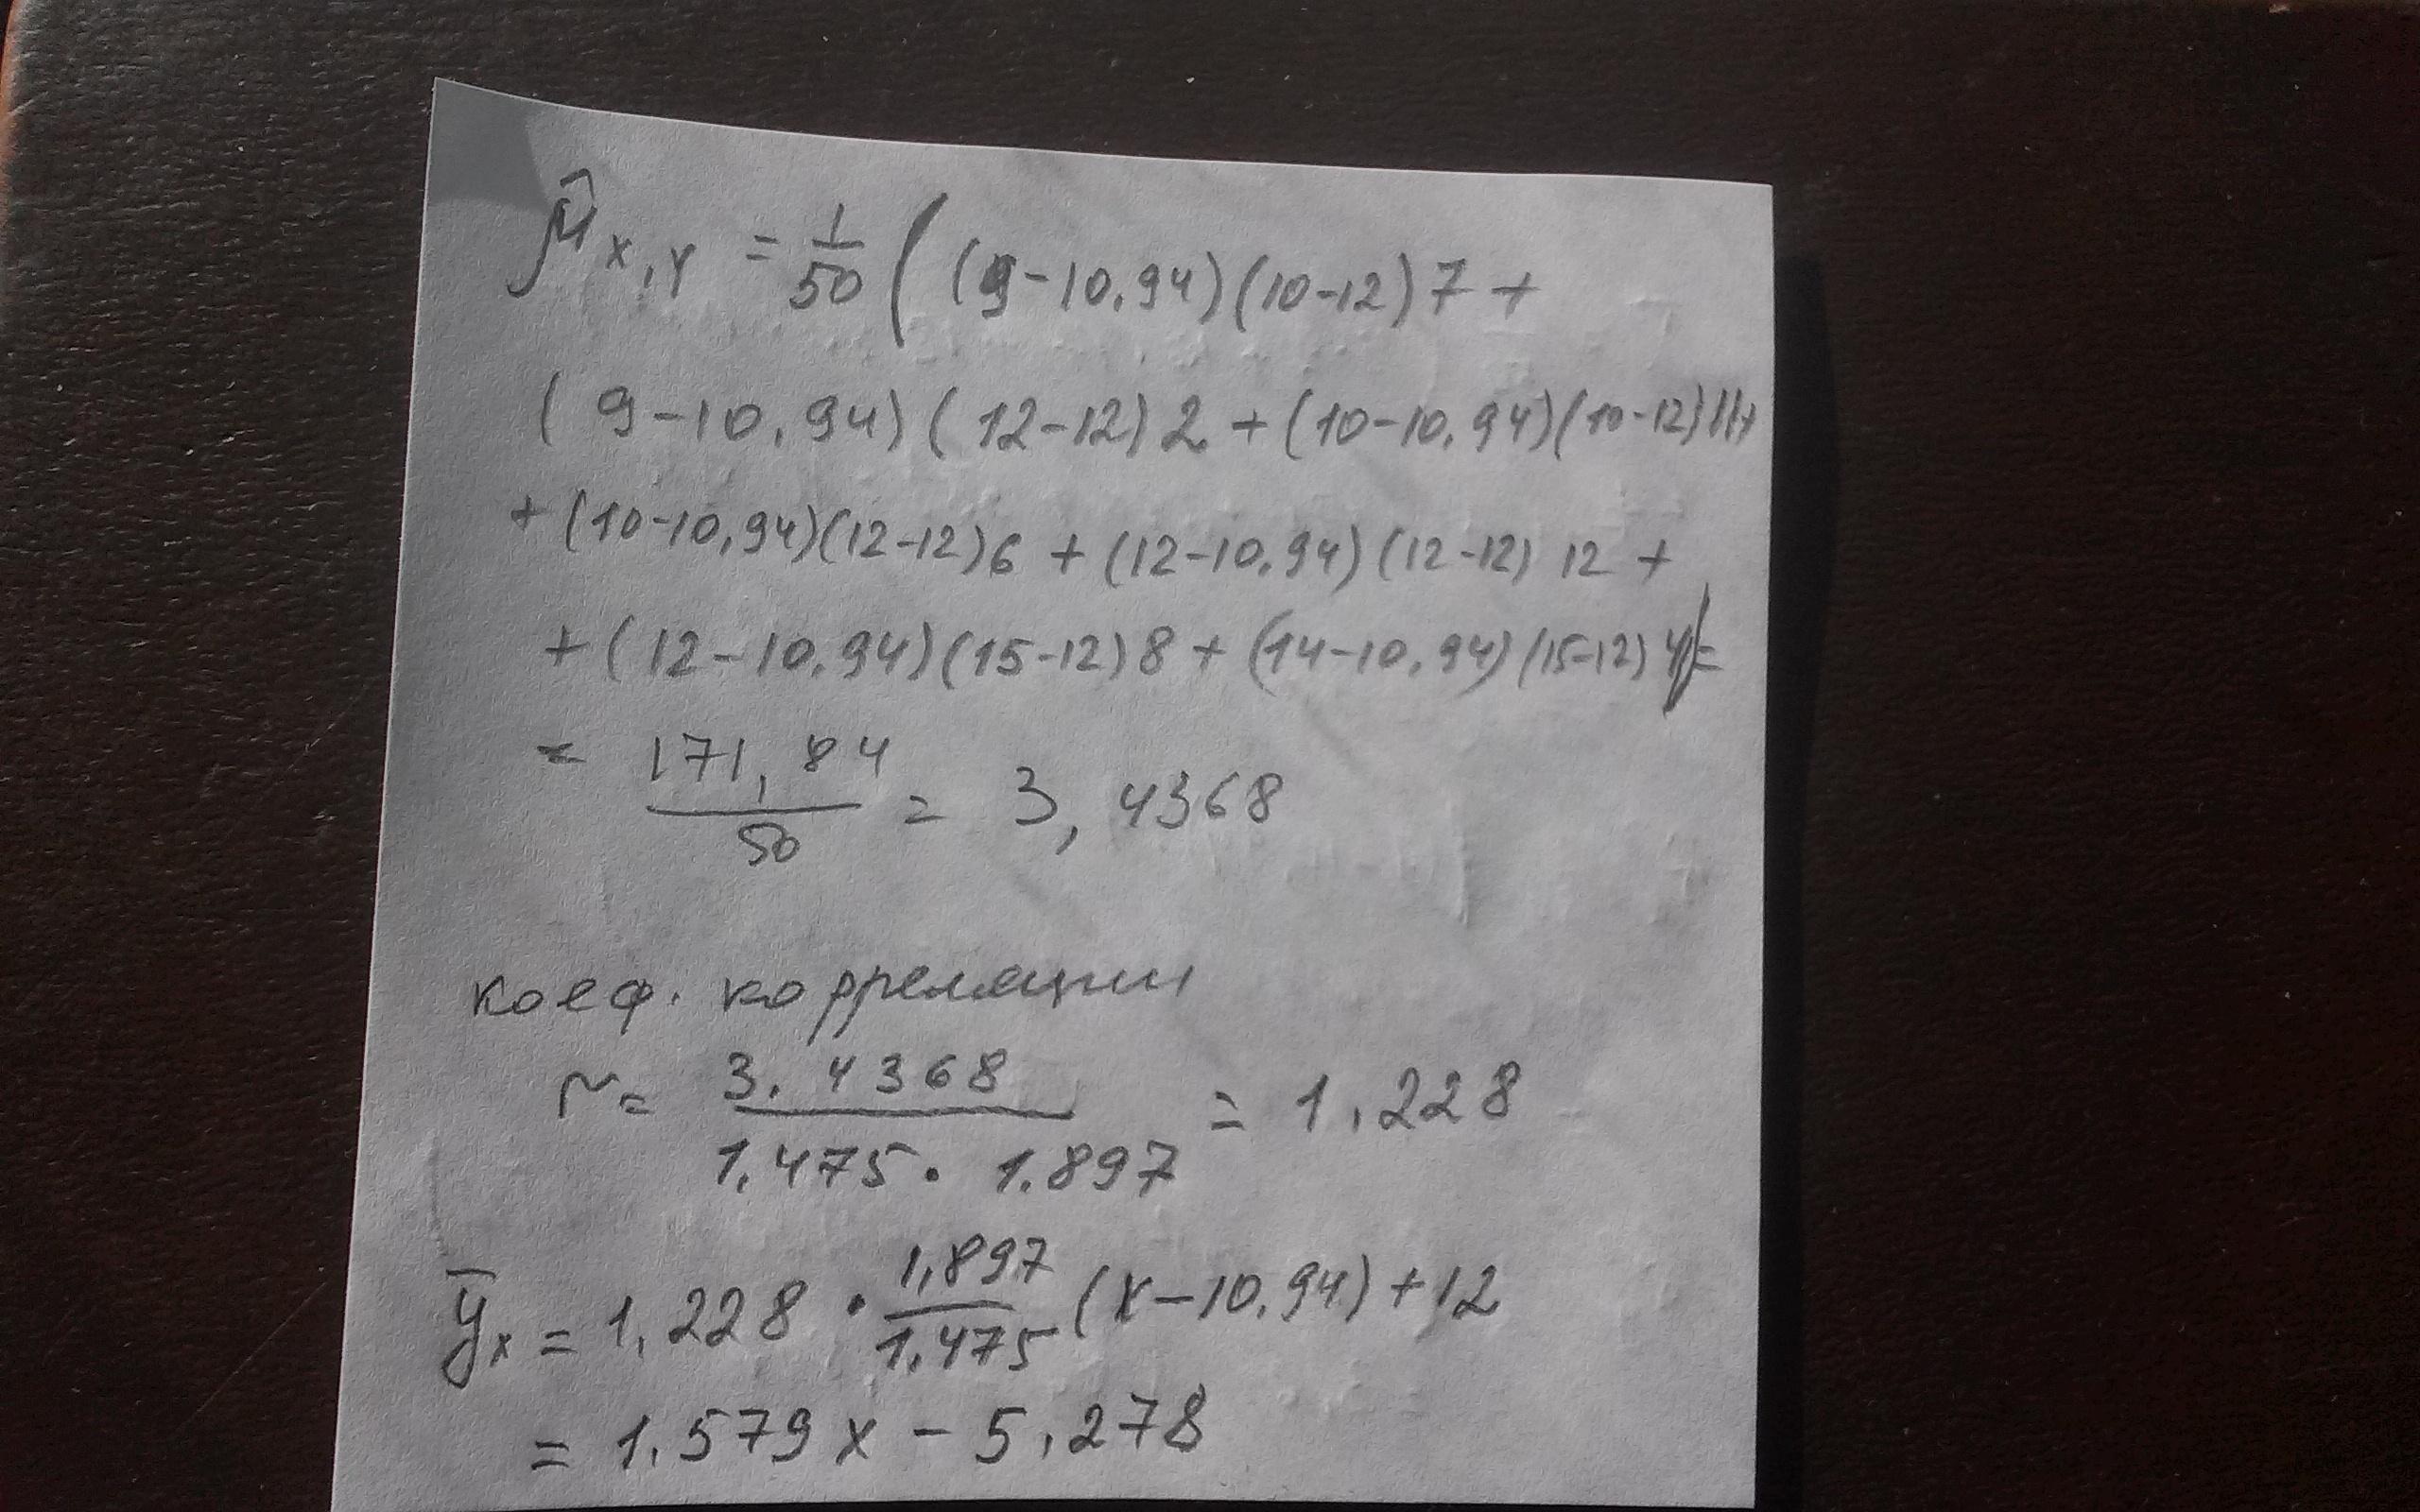 μ̂ x,y = 1/50 ( (9-10,94)(10-12) 7 +
(9-10,94)(12-12) 2 + (10-10,94)(10-12) 11+
+ (10-10,94)(12-12) 6 + (12-10,94)(12-12) 12 +
+ (12-10,94)(15-12) 8 + (14-10,94)(15-12) 4) =
= 171,84/50 = 3,4368
коеф. корреляции
r = 3.4368/1,475 · 1.897 = 1,228
ȳx = 1,228 · 1,897/1,475 (x-10,94) + 12
= 1.579x - 5,278